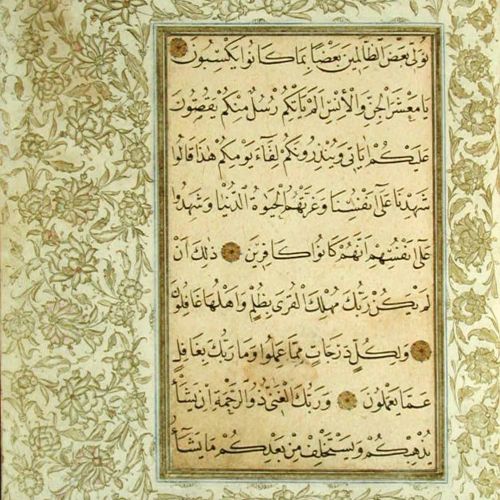 نولى بعض الظالمين بعضا بما كانوا يكسبون
يا معشر الجن والإنس الم يأتكم رسل منكم يقصون
عليكم اياتى وينذرونكم لقاء يومكم هذا قالوا
شهدنا على انفسنا وغرتهم الحيوة الدنيا وشهدوا
على انفسهم انهم كانوا كافرين ذلك ان
لم يكن ربك مهلك القرى بظلم واهلها غافلون
ولكل درجات مما عملوا وما ربك بغافل
عما يعملون وربك الغنى ذو الرحمة ان يشأ
يذهبكم ويستخلف من بعدكم ما يشآء